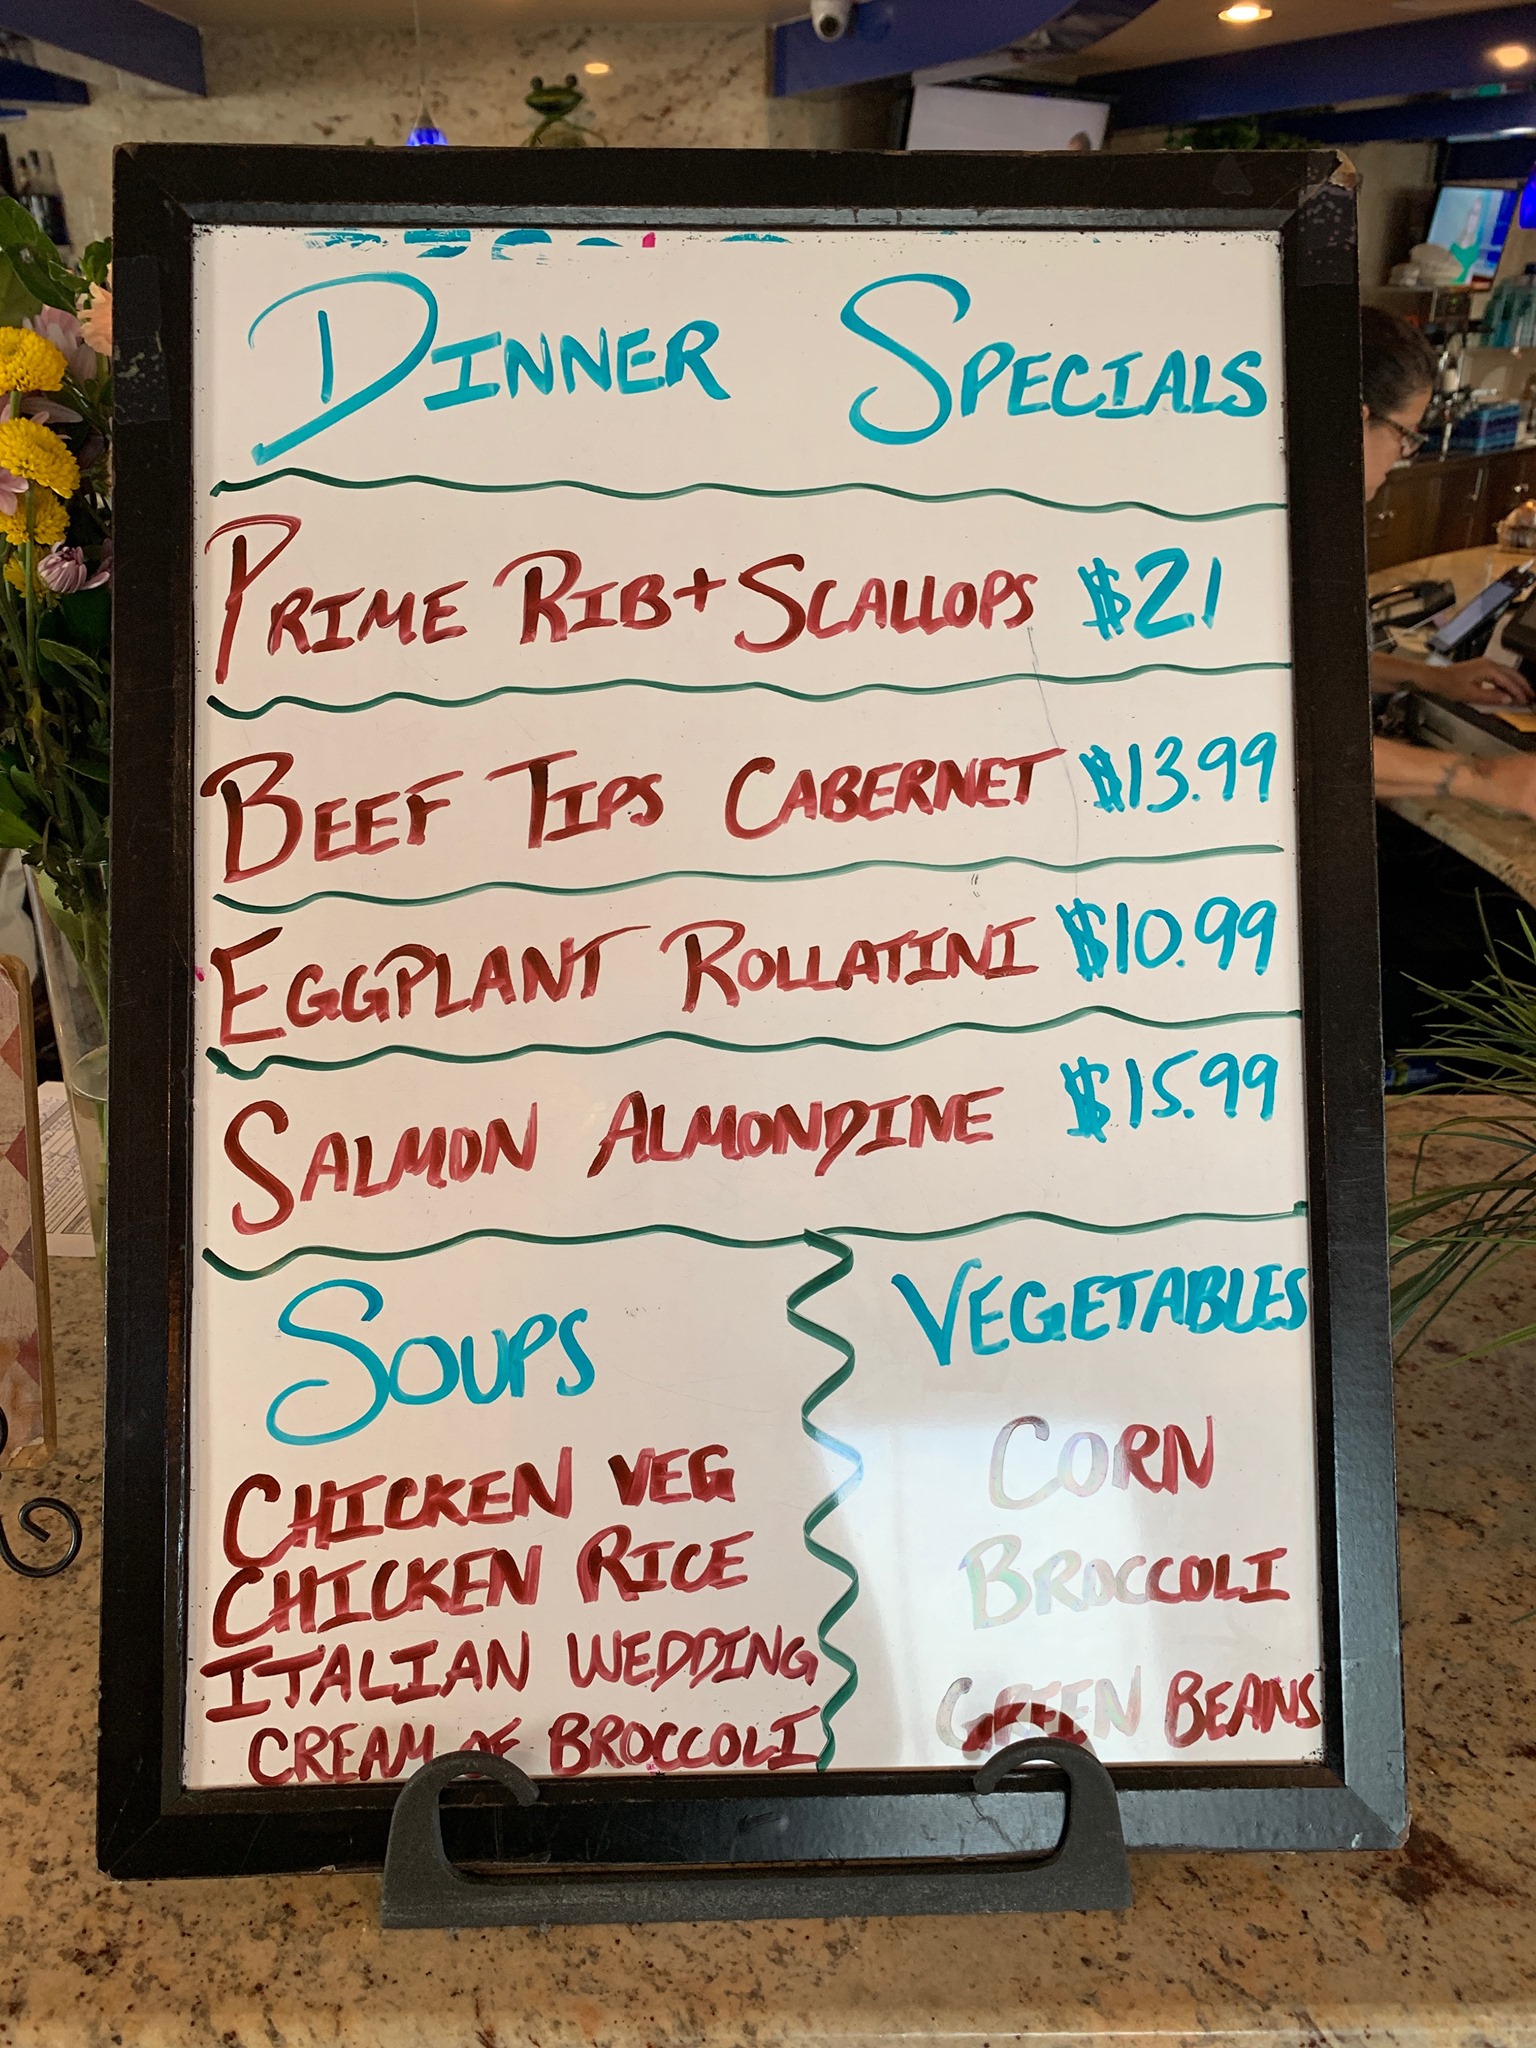 DINNER SPECIALS
PRIME RIB + SCALLOPS $21
BEEF TIPS CABERNET $13.99
EGGPLANT ROLLATINI $10.99
SALMON ALMONDINE $15.99
SOUPS
CHICKEN VEG
CHICKEN RICE
ITALIAN WEDDING
CREAM OF BROCCOLI
VEGETABLES
CORN
BROCCOLI
GREEN BEANS